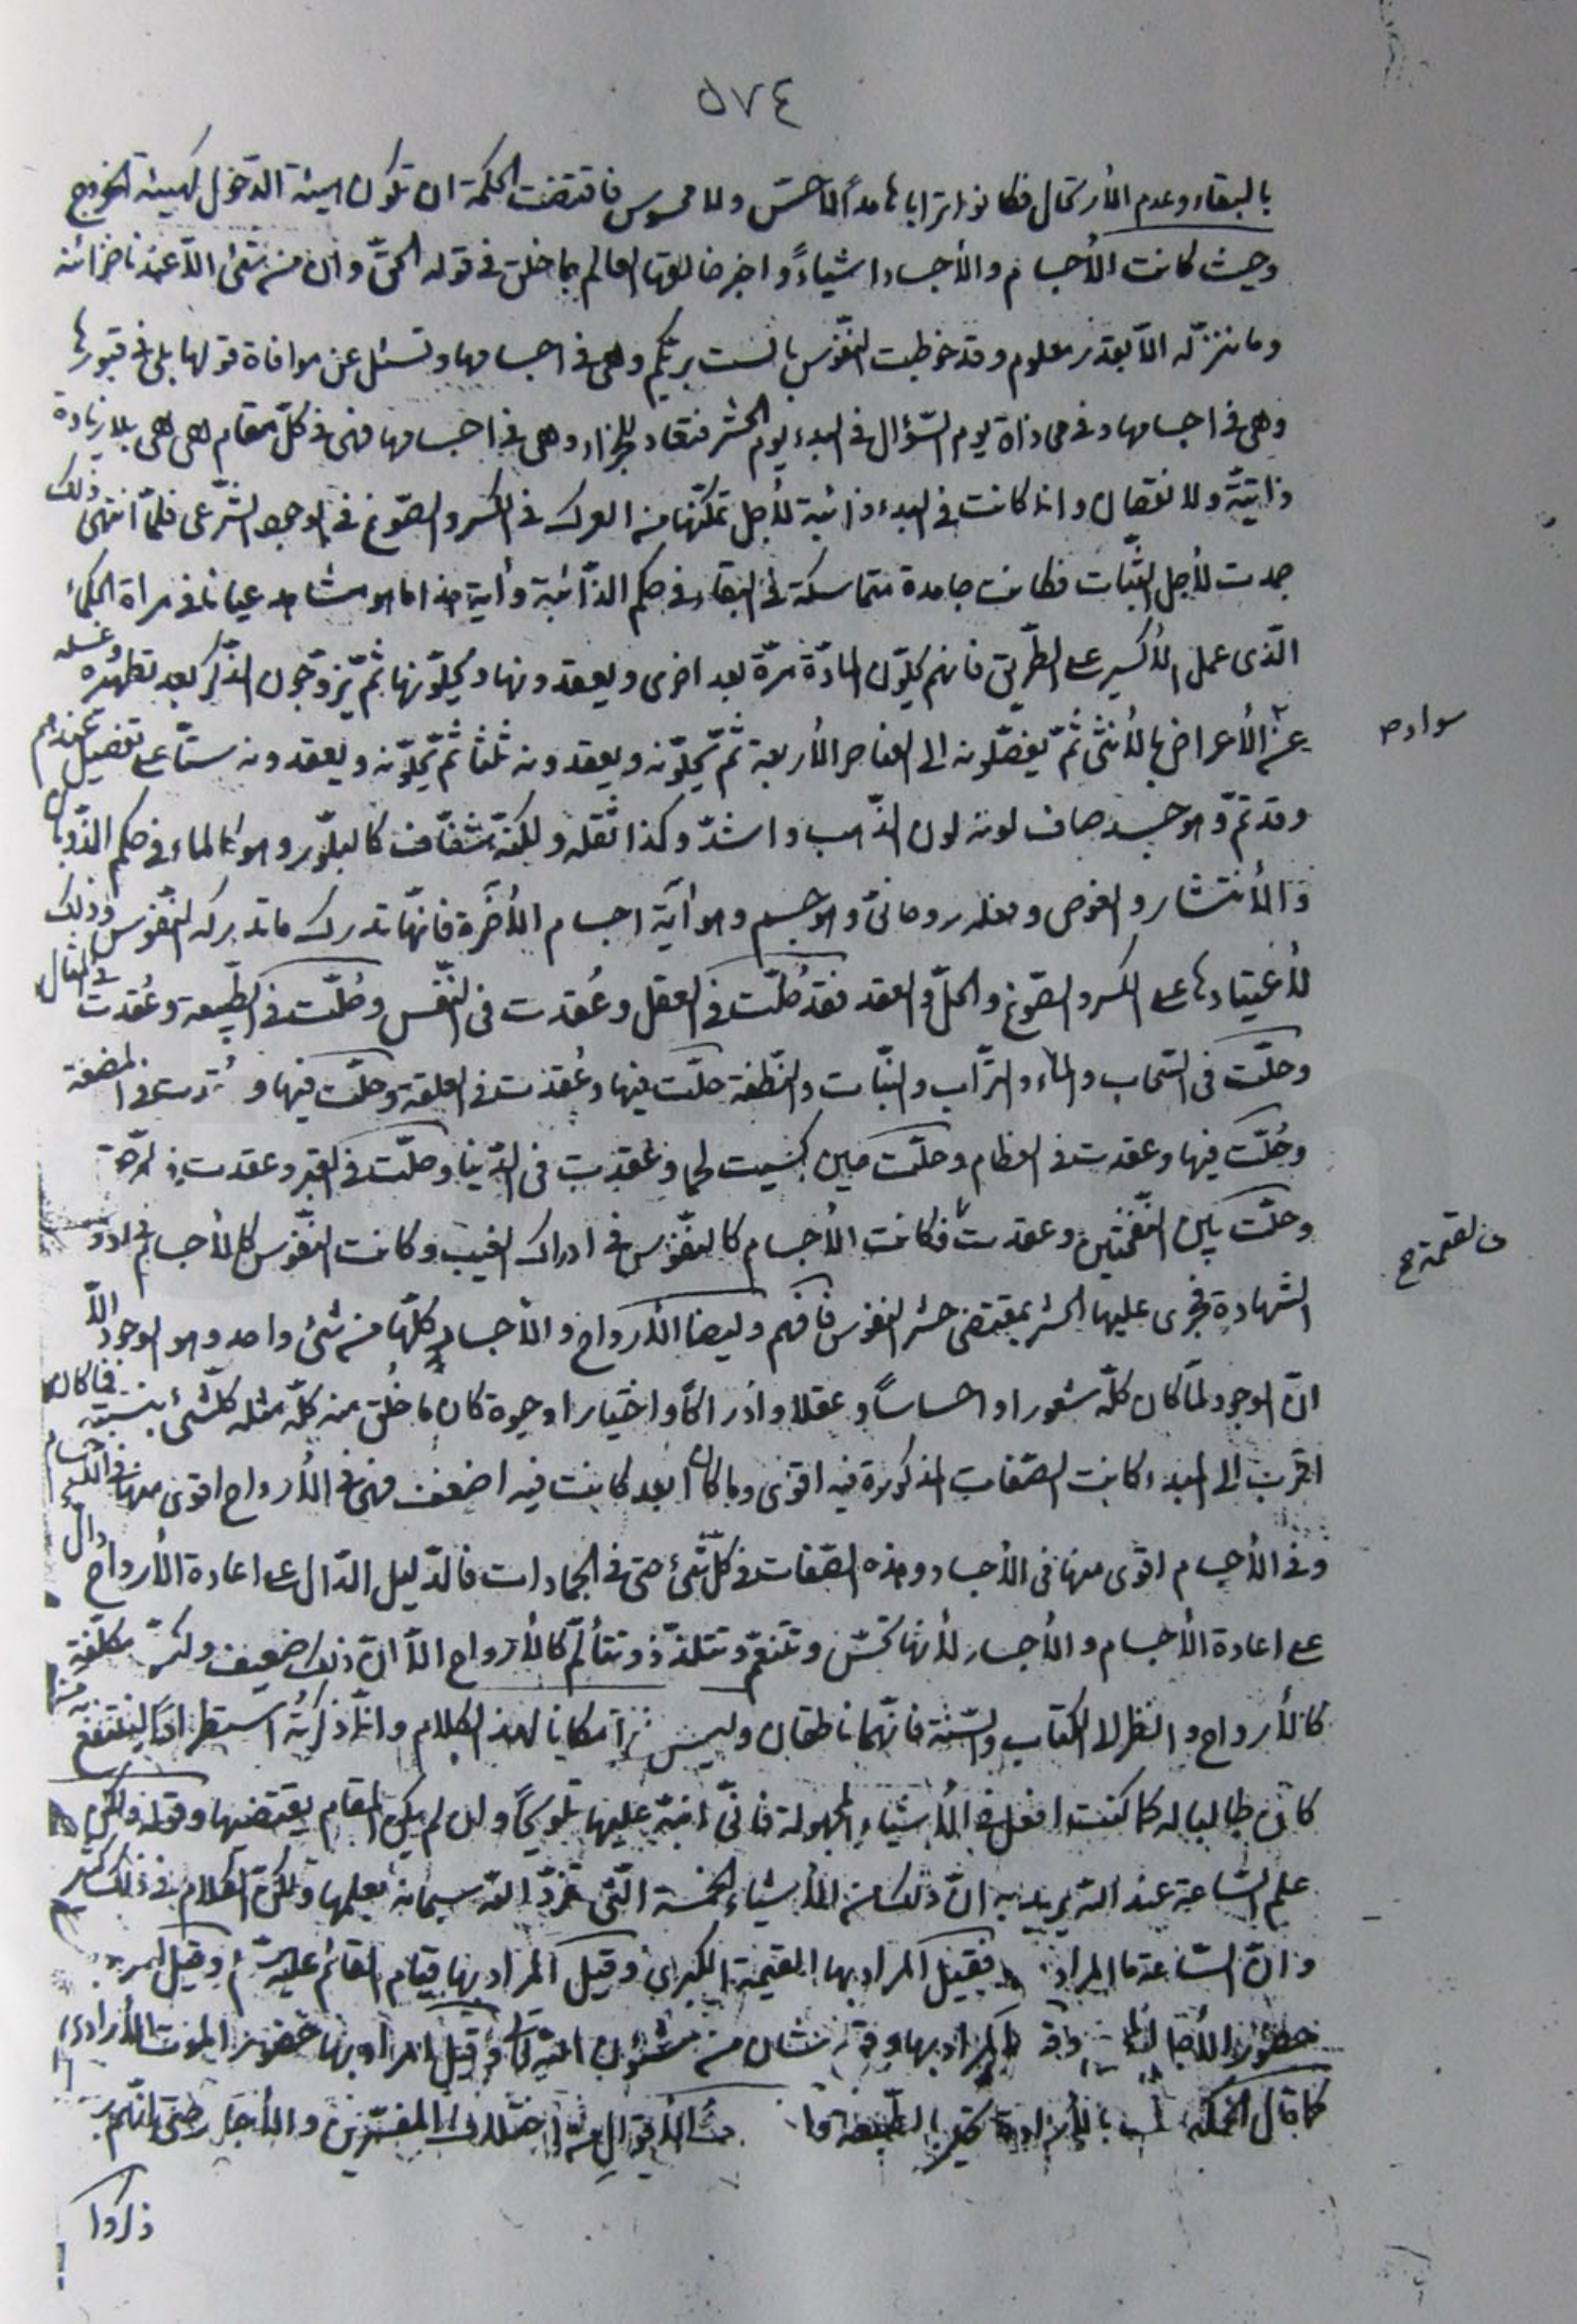 ٥٧٤
بالبقاء وعدم الأرتحال فكانوا ترابا هامداً لا حسّ ولا محسوس فاقتضت الحكمة ان تكون هيئة الدّخول كهيئة الخروج
وحيث كانت الأجسام والأجساد اشياءً واخبر خالقها العالم بما خلق في قوله الحقّ وان من شئ الّا عندنا خزائنه
وما ننزّله الّا بقدر معلوم وقد خوطبت النّفوس بالست بربّكم وهي في اجسامها وتسئل عن موافاة قولها بلى في قبورها
وهي في اجسامها وفي محاذاة يوم السّؤال في البدء يوم الحشر فتعاد للجزاء وهي في اجسامها فهى في كلّ مقام هي هي بلا زيادة
ذاتيّة ولا نقصان وانما كانت في البدء ذائبة لأجل تمكّنها من العرك في الكسر والصّوغ في الوجود الشّرعى فلمّا انتهى ذلك
جمدت لأجل الثّبات فكانت جامدة متماسكة في البقاء في حكم الذّائبة وأية هذا ما هو مشاهد عيانا في مراة الحكماء
الّذى عمل الأكسير على الطّريق فانهم يحلّون المادّة مرّة بعد اخرى ويعقدونها ويحلّونها ثمّ يزوّجون الذّكر بعد تطهيره وغسله
عن الأعراض بالأنثى ثمّ يفصّلونه الى العناصر الأربعة ثمّ يحلّونه ويعقدونه ثلثا ثمّ يحلّونه ويعقدونه ستّا على تفصيل عندهم
سوادم
وقد تمّ وهو جسد صاف لونه لون الذّهب واشدّ وكذا ثقله ولكنّه شفّاف كالبلّور وهو كالماء في حكم الذّوبان
والأنتشار والغوص وفعله روحانىّ وهو جسم وهو آية اجسام الأخرة فانّها تدرك ما تدركه النّفوس وذلك
لأعتيادها على الكسر والصّوغ والحلّ والعقد فقد حُلّت في العقل وعُقدت في النّفس وحُلّت في الطّبيعة وعُقدت في المثال
وحلّت في السّحاب والماء والتّراب والنّبات والنّطفة حلّت فيها وعُقدت في العلقة وحلّت فيها و في المضغة
وحُلّت فيها وعقدت في العظام وحلّت حين كسيت لحما وعقدت في الدّنيا وحلّت في القبر وعقدت في
وحلّت بين النّفختين وعقدت فكانت الأجسام كالنّفوس في ادراك الغيب وكانت النّفوس كالأجسام في
في القيمة صح
الشّهادة فجرى عليها الحشر بمقتضى حشر النفوس فافهم وايضا الأرواح والأجساد كلّها من شئ واحد وهو الوجود الّا
انّ الوجود لمّا كان كلّه شعورا واحساساً وعقلا وادراكاً واختيارا وحيوة كان ما خُلق منه كلّه مثله كلّ شئ بنسبته فما كان
اقرب الى المبدء كانت الصّفات المذكورة فيه اقوى وما كان ابعد كانت فيه اضعف فهى في الأرواح اقوى منها في الأجسام
وفي الأجسام اقوى منها في الأجساد وهذه الصّفات في كلّ شئ حتى في الجمادات فالدّليل الدّال على اعادة الأرواح دالّ
على اعادة الأجسام والأجساد لأنها تحسّ وتتنعّم وتتلذّذ وتتألّم كالأرواح الّا انّ ذلك ضعيف مكلّفة
كالأرواح وانظر الى الكتاب والسّنة فانّهما ناطقان وليس هذا مكانا لهذا الكلام وانّما ذكرته استطراداً لينتفع به من
كان طالبا له كما كنت افعل في الأشياء المجهولة فانّى انبّه عليها تلويحاً وان لم يكن المقام يقتضيها وقوله ولكن
علم السّاعة عند الله يريد به انّ ذلك من الأشياء الخمسة الّتى تفرّد الله سبحانه بعلمها ولكن الكلام في ذلك كثير
وانّ السّاعة ما المراد بها فقيل المراد بها القيمة الكبرى وقيل المراد بها قيام القائم عليه السّلام وقيل المراد
حضور المراد بها وقوع شان من شئون الله وقيل المراد بها حضور الموت الأرادى
كما قال الحكيم مت بالأرادة تحيى بالطّبيعة الأقوال من اختلاف المفسّرين والأخبار حتى انّهم
ذكروا